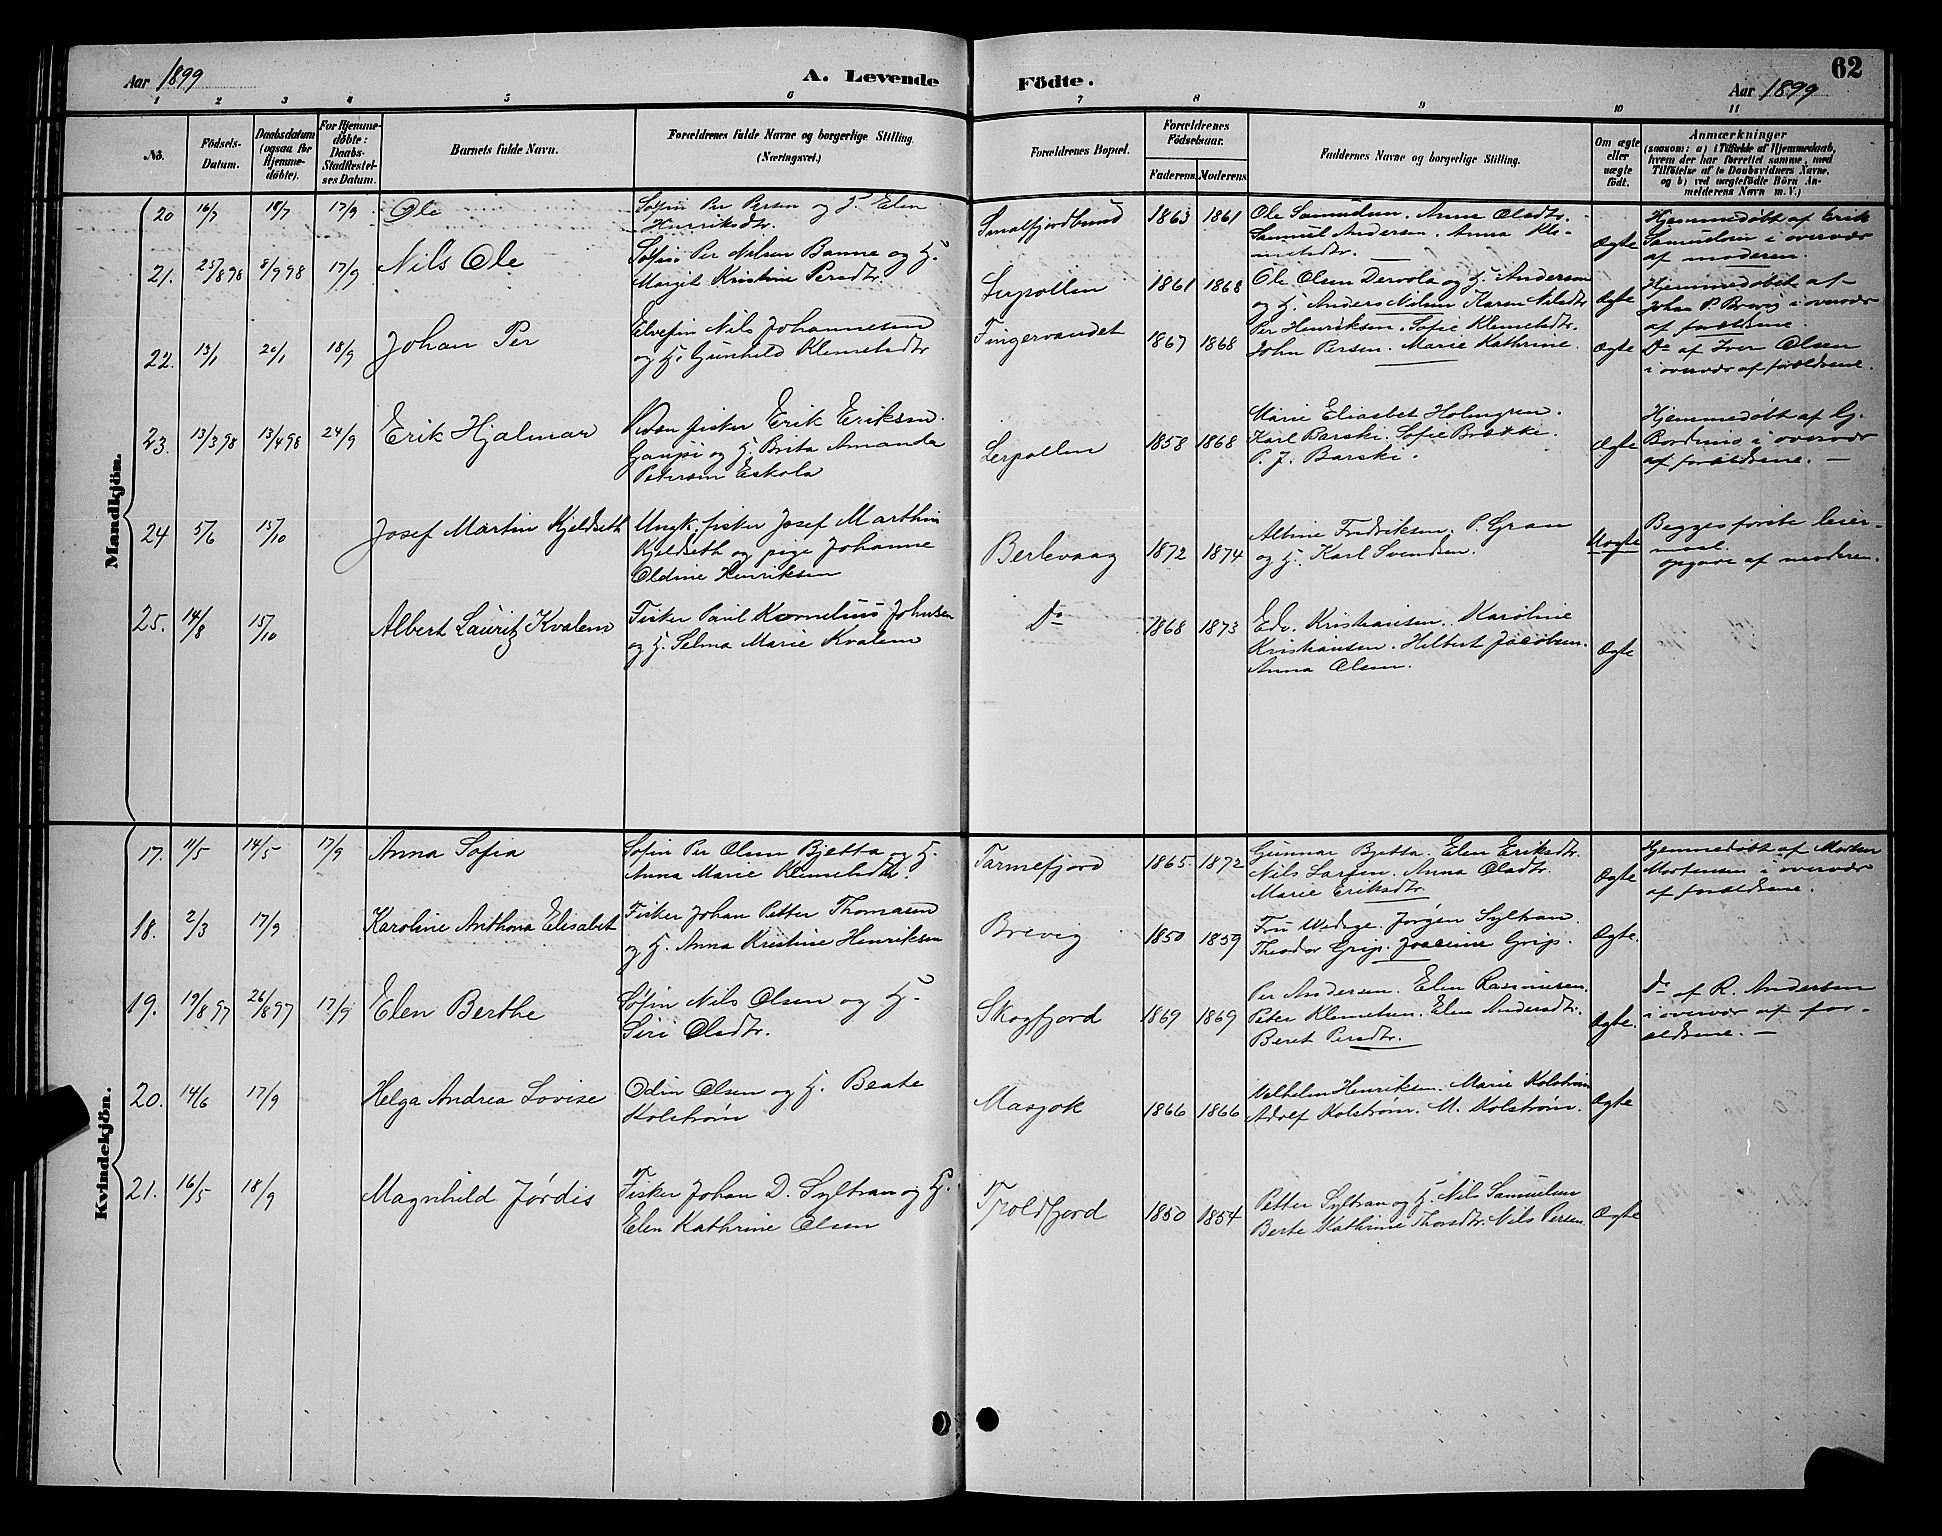 Aar 1899
A. Levende
1 2 3 4 5 6
No.
Födsels-Datum.
Daabsdatum (ogsaa for Hjemmedöbte).
For Hjemmedöbte: Daabs-Stadfæstelses Datum.
Barnets fulde Navn.
Forældrenes fulde Navne og borgerlige Stilling. (Næringsvei.)
Födte.
Aar 1899
62
7 8 9 10 11
Forældrenes Bopæl.
Forældrenes Födselsaar.
Faderens. Moderens.
Faddernes Navne og borgerlige Stilling.
Om ægte eller uægte födt.
Anmærkninger
(saasom: a) i Tilfælde af Hjemmedaab, hvem der har forrettet samme, med Tilföielse af to Daabsvidners Navne, og b) ved uægtefödte Börn Anmelderens Navn m. V.)
Mandkjön.
20 16/7 18/7 17/9 Ole
Søfin Per Persen og H. Elen
Henriksdtr.
Smalfjordbund 1863 1861
Ole Samuelsen. Anne Olsdtr.
Samuel Andersen. Anna Kle-
metsdtr.
Ægte
Hjemmedøbt af Erik
Samuelsen i overvær
af moderen.
21. 25/8 98 8/9 98 17/9 Nils Ole
Søfin Per Nilsen Banne og H.
Margit Kristine Persdtr
Lerpollen 1861 1868
Ole Olsen Dervola og H. Andersen
og H. Anders Nilsen Karen Nilsdtr
Ægte
Hjemmedøbt af
Johan P. Brevig i overvær
af forældrene.
22. 13/1 20/1 18/9 Johan Per
Elvefin Nils Johannesen
og H. Gunhild Klemetsdtr
Tingervandet 1867 1868
Per Henriksen. Sofie Klemetsdtr.
John Persen. Marie Kathrine.
Ægte
Do af Iver Olsen
i overvær af forældrene.
23. 13/3 98 13/4 98 24/9 Erik Hjalmar
Kvæn fisker Erik Eriksen
Gaupi og H. Brita Amanda
Petersen Eskola
Lerpollen 1858 1868
Marie Eliasbet Holmgren.
Karl Barski. Sofie Brække.
P. J. Barski.
Ægte
Hjemmedøbt af G.
i overvær
af forældrene.
24 5/6 15/10 Josef Martin Kjeldseth
Ungk. fisker Josef Marthin
Kjeldseth og pige Johanne
Oldine Henriksen
Berlevaag 1872 1874
Albine Fredriksen. P. Gran
og H. Karl Svendsen.
Uægte
Begges første leier-
maal.
opgave af moderen.
25. 14/8 15/10 Albert Lauritz Kvalem
Fisker Paul Kornelius Johnsen
og H. Selma Marie Kvalem
Do 1868 1873
Edv. Kristiansen. Karoline
Kristiansen. Hilbert Jacobsen.
Anna Olsen.
Ægte
Kvindekjön.
17. 11/5 14/5 17/9 Anna Sofia
Søfin Per Olsen Bjetta og H.
Anna Marie Klemetsdtr.
Tarmefjord 1865 1872
Gunnar Bjetta. Elen Eriksdtr.
Nils Larsen. Anna Olsdtr.
Marie Eriksdtr.
Ægte
Hjemmedøbt af Morten
Mortensen i overvær
af forældrene.
18. 2/3 17/9 Karoline Anthona Elisabet
Fisker Johan Petter Thomasen
og H. Anna Kristine Henriksen
Brevig 1850 1859
Fru Wedge. Jørgen Syltran.
Theodor Grip. Joacime Grip.
Ægte.
19. 19/8 97 26/8 97 17/9 Elen Berthe
Søfin Nils Olsen og H.
Siri Olsdtr.
Skogfjord 1869 1869
Per Andersen. Elen Rasmusen.
Peter Klemetsen. Elen Andersdtr.
Beret Persdtr.
Ægte.
Do af R. Andersen
i overvær af for-
ældrene.
20. 14/6 17/9 Helga Andrea Lovise
Odin Olsen og H. Beate
Kolstrøm
Masjok 1866 1866
Velhelm Henriksen. Marie Kolstrøm
Adolf Kolstrøm. M. Kolstrøm.
Ægte
21. 16/5 18/9 Magnhild Jørdis
Fisker Johan D. Syltran og H.
Elen Kathrine Olsen
Troldfjord 1850 1854
Petter Syltran og H. Nils Samuelsen
Berte Kathrine Thorsdtr. Nils Persen
Ægte